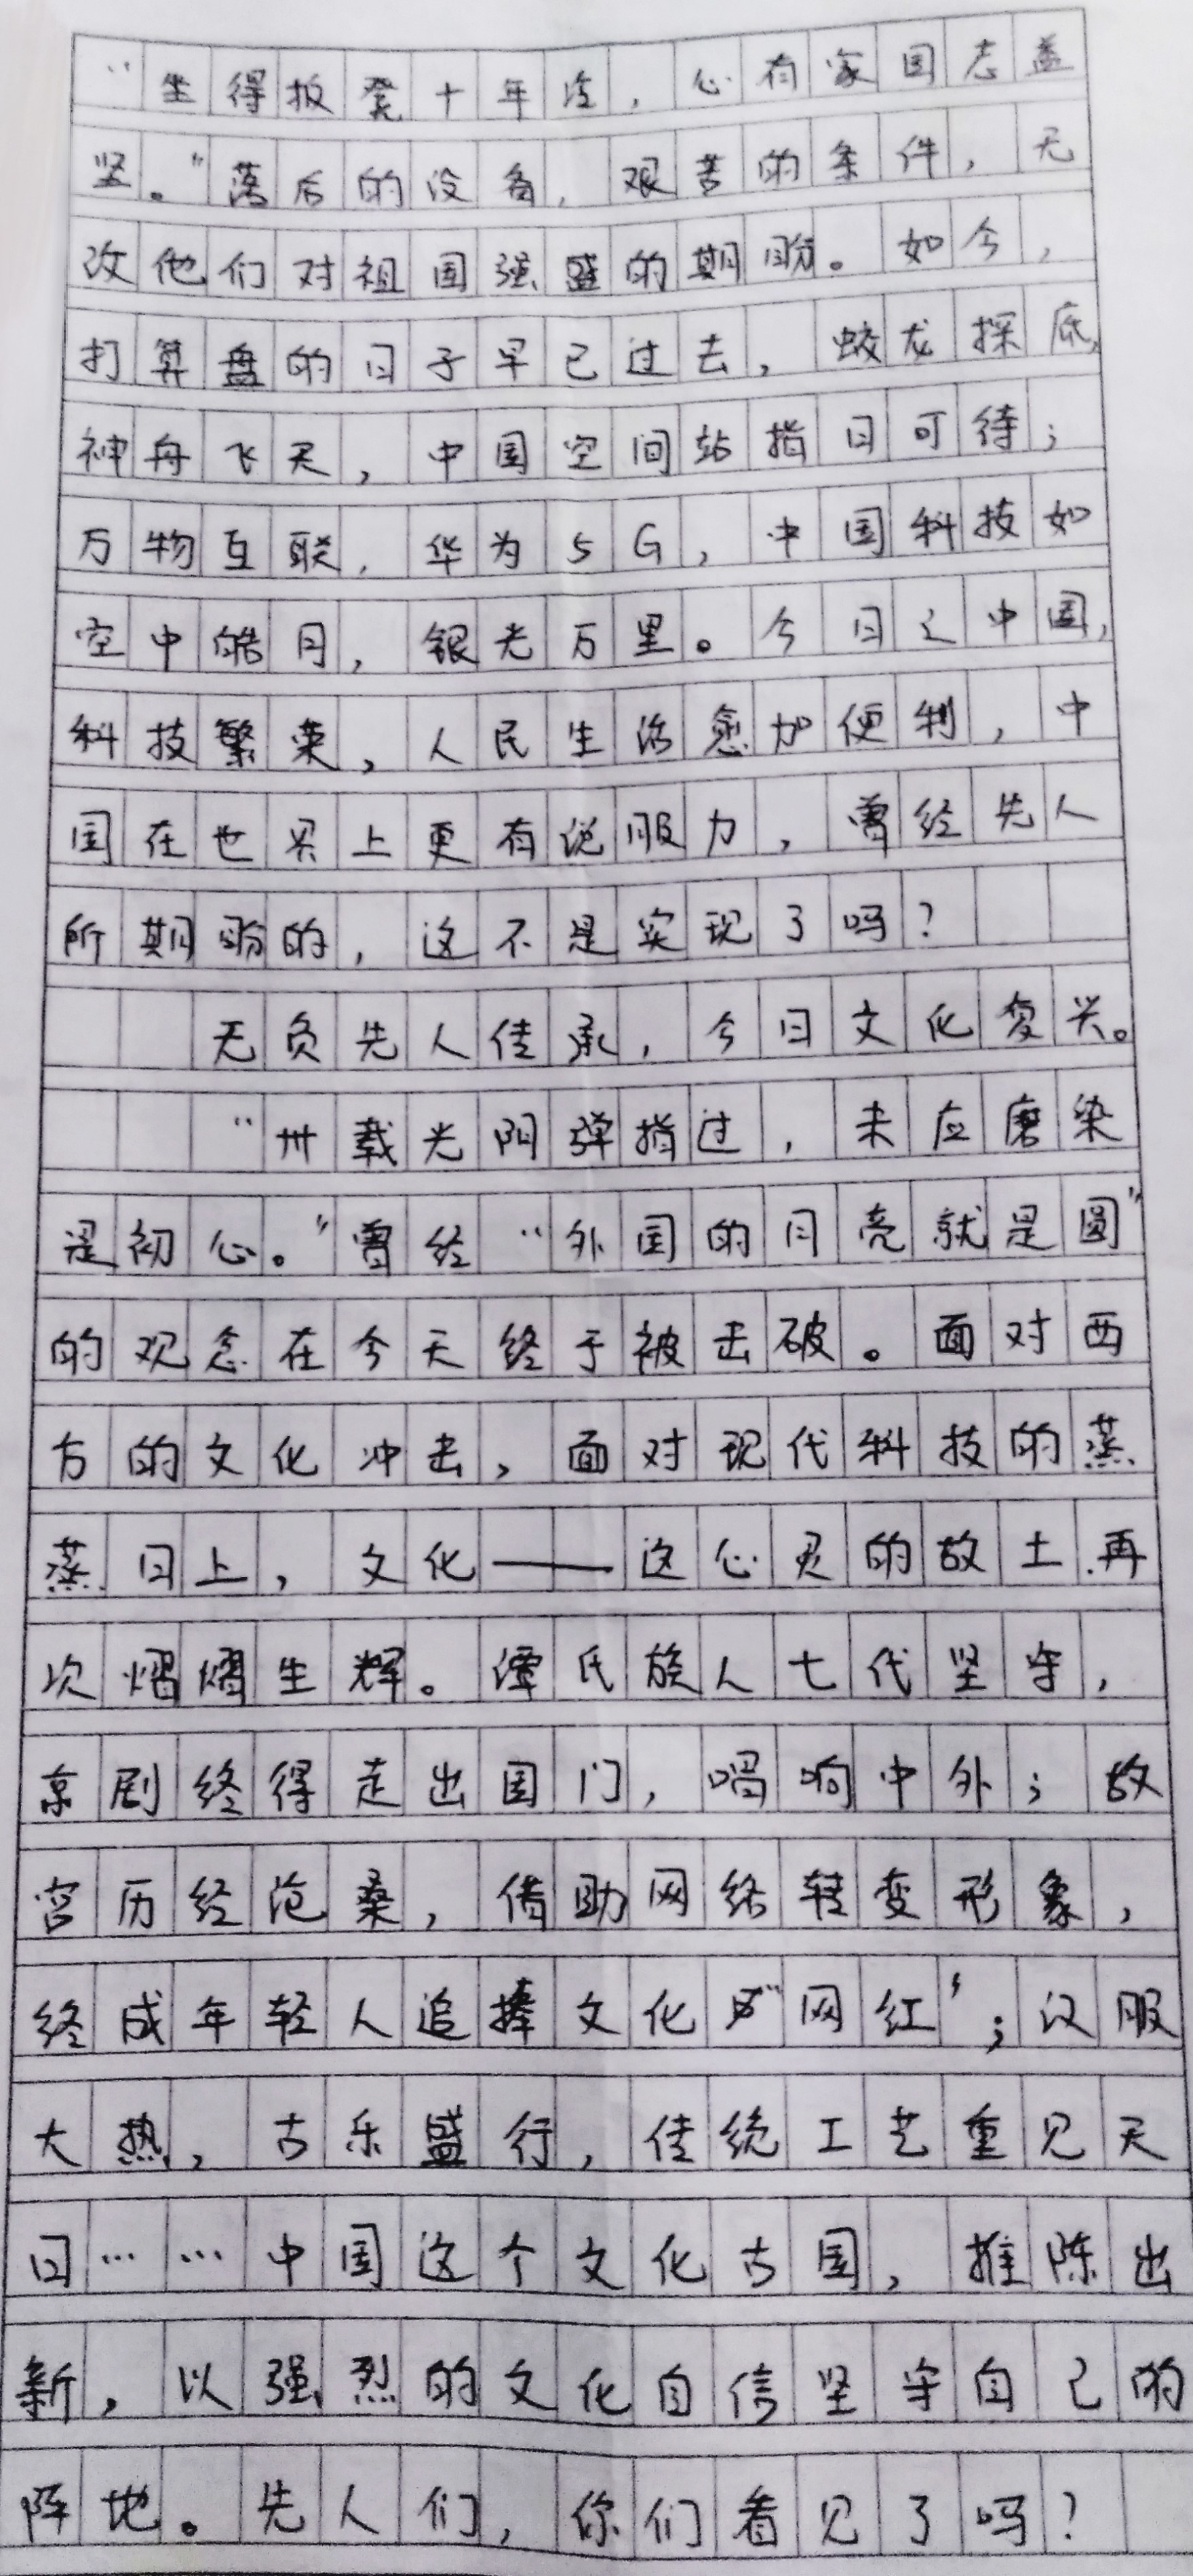 “坐得板凳十年冷,心有家国志益
坚。”落后的设备,艰苦的条件,无
改他们对祖国强盛的期盼。如今,
打算盘的日子早已过去,蛟龙探底,
神舟飞天,中国空间站指日可待;
万物互联,华为5G,中国科技如
空中皓月,银光万里。今日之中国,
科技繁荣,人民生活愈加便利,中
国在世界上更有说服力,曾经先人
所期盼的,这不是实现了吗?
无负先人传承,今日文化复兴。
“卅载光阴弹指过,未应磨染
是初心。”曾经“外国的月亮就是圆”
的观念在今天终于被击破。面对西
方的文化冲击,面对现代科技的蒸
蒸日上,文化——这心灵的故土再
次熠熠生辉。谭氏族人七代坚守,
京剧终得走出国门,唱响中外;故
宫历经沧桑,借助网络转变形象,
终成年轻人追捧文化“网红”;汉服
大热,古乐盛行,传统工艺重见天
日……中国这个文化古国,推陈出
新,以强烈的文化自信坚守自己的
阵地。先人们,你们看见了吗?